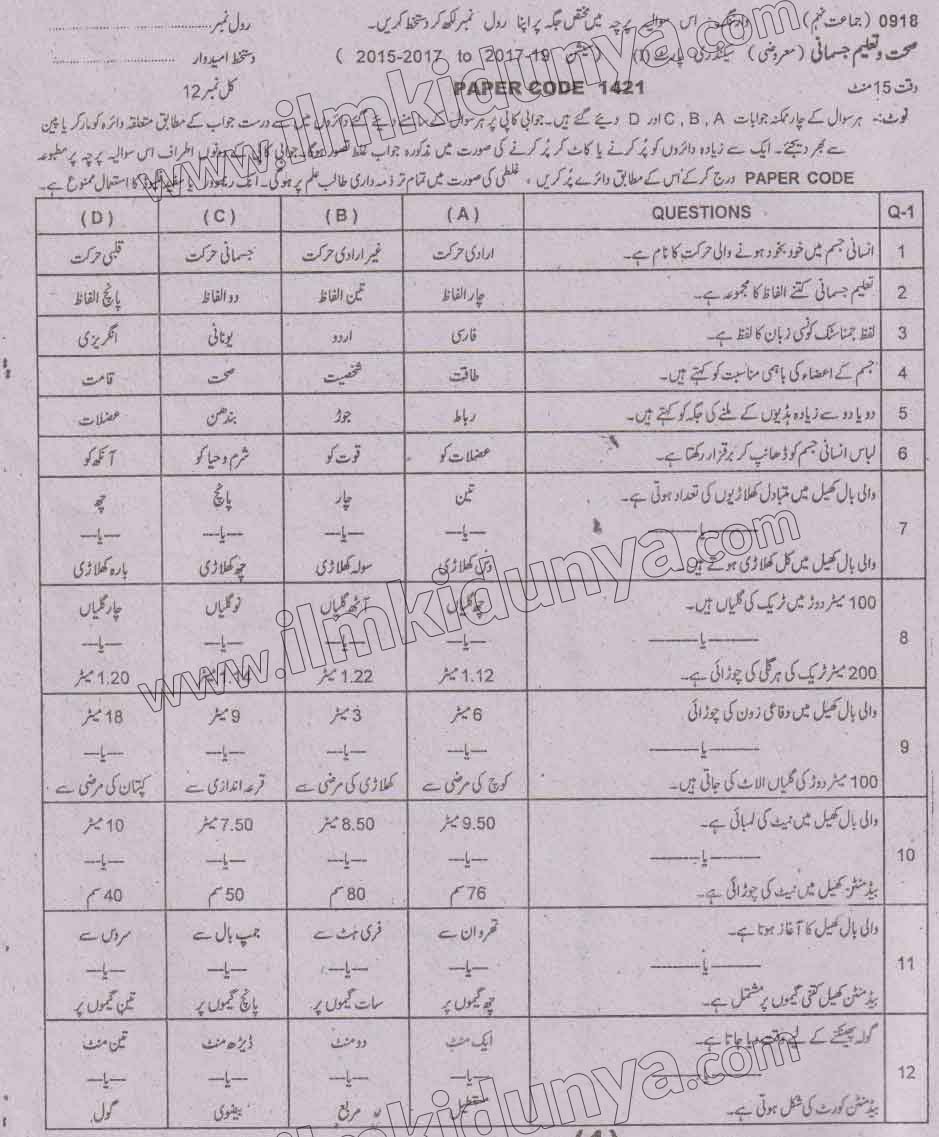 0918 (جماعت نہم) وارننگ:۔ اس سوالیہ پرچہ میں مختص جگہ پر اپنا رول نمبر لکھ کر دستخط کریں۔ رول نمبر
صحت و تعلیم جسمانی (معروضی) سیکنڈری پارٹ (I) (سیشن 2015-2017 to 2017-19) دستخط امیدوار
وقت 15 منٹ PAPER CODE 1421 کل نمبر 12
نوٹ:۔ ہر سوال کے چار ممکنہ جوابات C, B, A اور D دیئے گئے ہیں۔ جوابی کاپی پر ہر سوال کے سامنے دیئے گئے دائروں میں سے درست جواب کے مطابق متعلقہ دائرہ کو مارکر یا پین
سے بھر دیجئے۔ ایک سے زیادہ دائروں کو پُر کرنے یا کاٹ کر پُر کرنے کی صورت میں مذکورہ جواب غلط تصور ہو گا۔ جوابی کاپی کے دونوں اطراف اس سوالیہ پرچہ پر مطبوعہ
PAPER CODE درج کر کے اس کے مطابق دائرے پُر کریں، غلطی کی صورت میں تمام تر ذمہ داری طالب علم پر ہوگی۔ انک ریموور یا سفید فلوئڈ کا استعمال ممنوع ہے۔
Q-1 QUESTIONS (A) (B) (C) (D)
1 انسانی جسم میں خود بخود ہونے والی حرکت کا نام ہے۔ ارادی حرکت غیر ارادی حرکت جسمانی حرکت قلبی حرکت
2 تعلیم جسمانی کتنے الفاظ کا مجموعہ ہے۔ چار الفاظ تین الفاظ دو الفاظ پانچ الفاظ
3 لفظ جمناسٹک کونسی زبان کا لفظ ہے۔ فارسی اردو یونانی انگریزی
4 جسم کے اعضاء کی باہمی مناسبت کو کہتے ہیں۔ طاقت شخصیت صحت قامت
5 دو یا دو سے زیادہ ہڈیوں کے ملنے کی جگہ کو کہتے ہیں۔ رباط جوڑ بندھن عضلات
6 لباس انسانی جسم کو ڈھانپ کر برقرار رکھتا ہے۔ عضلات کو قوت کو شرم و حیا کو آنکھ کو
7 والی بال کھیل میں متبادل کھلاڑیوں کی تعداد ہوتی ہے۔ تین چار پانچ چھ
---یا--- ---یا--- ---یا--- ---یا--- ---یا---
والی بال کھیل میں کل کھلاڑی ہوتے ہیں۔ دس کھلاڑی سولہ کھلاڑی چھ کھلاڑی بارہ کھلاڑی
8 100 میٹر دوڑ میں ٹریک کی گلیاں ہیں۔ چھ گلیاں آٹھ گلیاں نو گلیاں چار گلیاں
---یا--- ---یا--- ---یا--- ---یا--- ---یا---
200 میٹر ٹریک کی ہر گلی کی چوڑائی ہے۔ 1.12 میٹر 1.22 میٹر 1.14 میٹر 1.20 میٹر
9 والی بال کھیل میں دفاعی زون کی چوڑائی 6 میٹر 3 میٹر 9 میٹر 18 میٹر
---یا--- ---یا--- ---یا--- ---یا--- ---یا---
100 میٹر دوڑ کی گلیاں الاٹ کی جاتی ہیں۔ کوچ کی مرضی سے کھلاڑی کی مرضی سے قرعہ اندازی سے کپتان کی مرضی سے
10 والی بال کھیل میں نیٹ کی لمبائی ہے۔ 9.50 میٹر 8.50 میٹر 7.50 میٹر 10 میٹر
---یا--- ---یا--- ---یا--- ---یا--- ---یا---
بیڈمنٹن کھیل میں نیٹ کی چوڑائی ہے۔ 76 سم 80 سم 50 سم 40 سم
11 والی بال کھیل کا آغاز ہوتا ہے۔ تھرو ان سے فری ہٹ سے جمپ بال سے سروس سے
---یا--- ---یا--- ---یا--- ---یا--- ---یا---
بیڈمنٹن کھیل کتنی گیموں پر مشتمل ہے۔ چھ گیموں پر سات گیموں پر پانچ گیموں پر تین گیموں پر
12 گولہ پھینکنے کے لیے وقت دیا جاتا ہے۔ ایک منٹ دو منٹ ڈیڑھ منٹ تین منٹ
---یا--- ---یا--- ---یا--- ---یا--- ---یا---
بیڈمنٹن کورٹ کی شکل ہوتی ہے۔ مستطیل مربع بیضوی گول
www.ilmkidunya.com
www.ilmkidunya.com
www.ilmkidunya.com